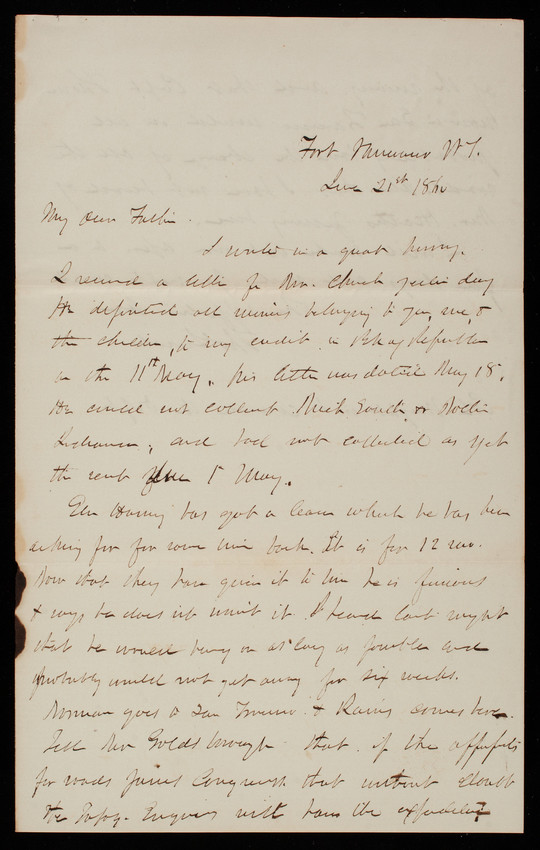 Fort Vancouver W.T.
June 21st 1860
My dear Father.
I write in a great hurry.
I received a letter fr Mr. Church yesterday
He deposited all monies belonging to you, me, &
the children, to my credit in Bk of Republic
on the 11th May. his letter was dated May 18.
He could not collect South or North
and had not collected as yet
the rent 1 May.
Gen Harney has got a leave which he has been
asking for for some time back. It is for 12 mo.
Now that they have given it to him he is furious
& says he does not want it. I heard last night
that he would hang on as long as possible and
probably would not get away for six weeks.
Norman goes to San & Rains comes here.
Tell Mr Goldsborough that if the appropts
for roads passes Congress that without doubt
the Topog. Engineers will have the expending